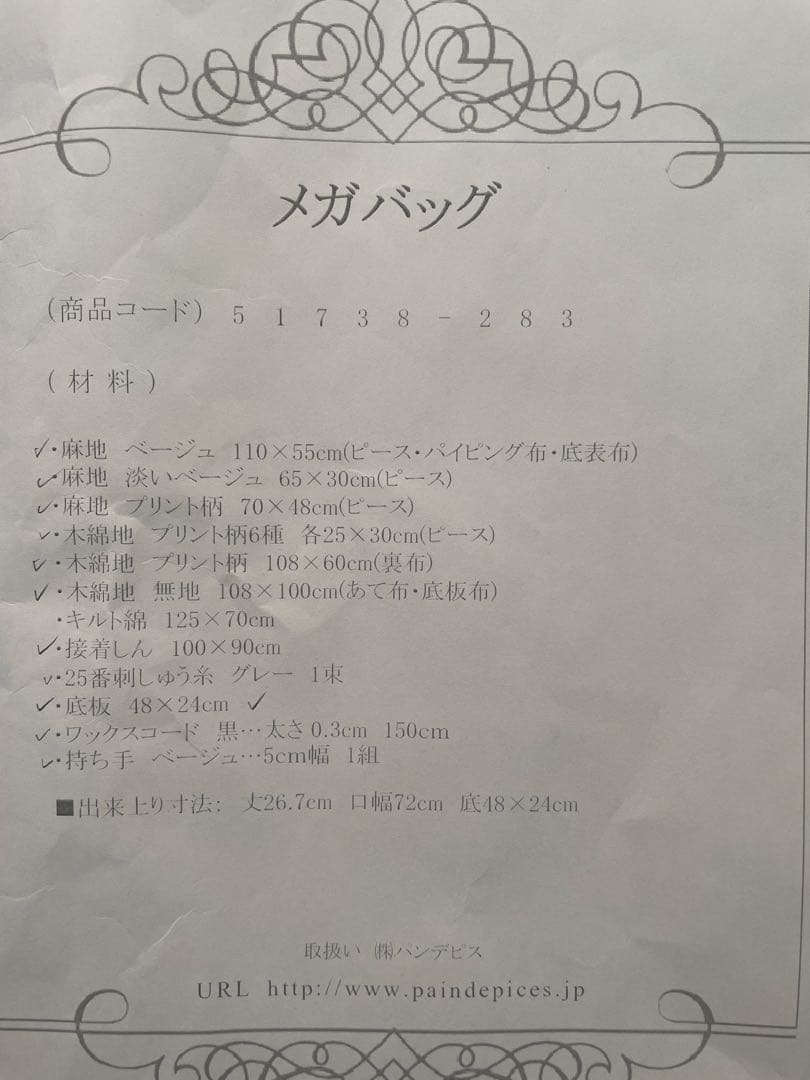 メガバッグ
(商品コード) 51738-283
(材料)
✓・麻地 ベージュ 110×55cm(ピース・パイピング布・底表布)
✓・麻地 淡いベージュ 65×30cm(ピース)
✓・麻地 プリント柄 70×48cm(ピース)
✓・木綿地 プリント柄6種 各25×30cm(ピース)
✓・木綿地 プリント柄 108×60cm(裏布)
✓・木綿地 無地 108×100cm(あて布・底板布)
・キルト綿 125×70cm
✓・接着しん 100×90cm
✓・25番刺しゅう糸 グレー 1束
✓・底板 48×24cm ✓
✓・ワックスコード 黒…太さ0.3cm 150cm
✓・持ち手 ベージュ…5cm幅 1組
■出来上り寸法: 丈26.7cm 口幅72cm 底48×24cm
取扱い ㈱パンデピス
URL http://www.paindepices.jp